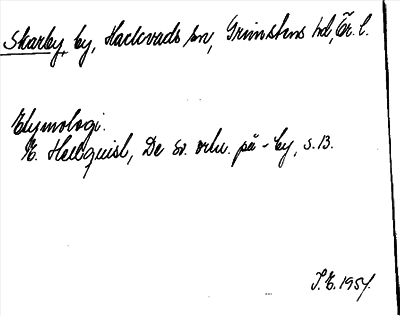 Skarby, by, Hackvads sn, Grimstens hd, Ör. l.
Etymologi.
E. Hellquist, De sv. ortn. på -by, s. 13.
1954.